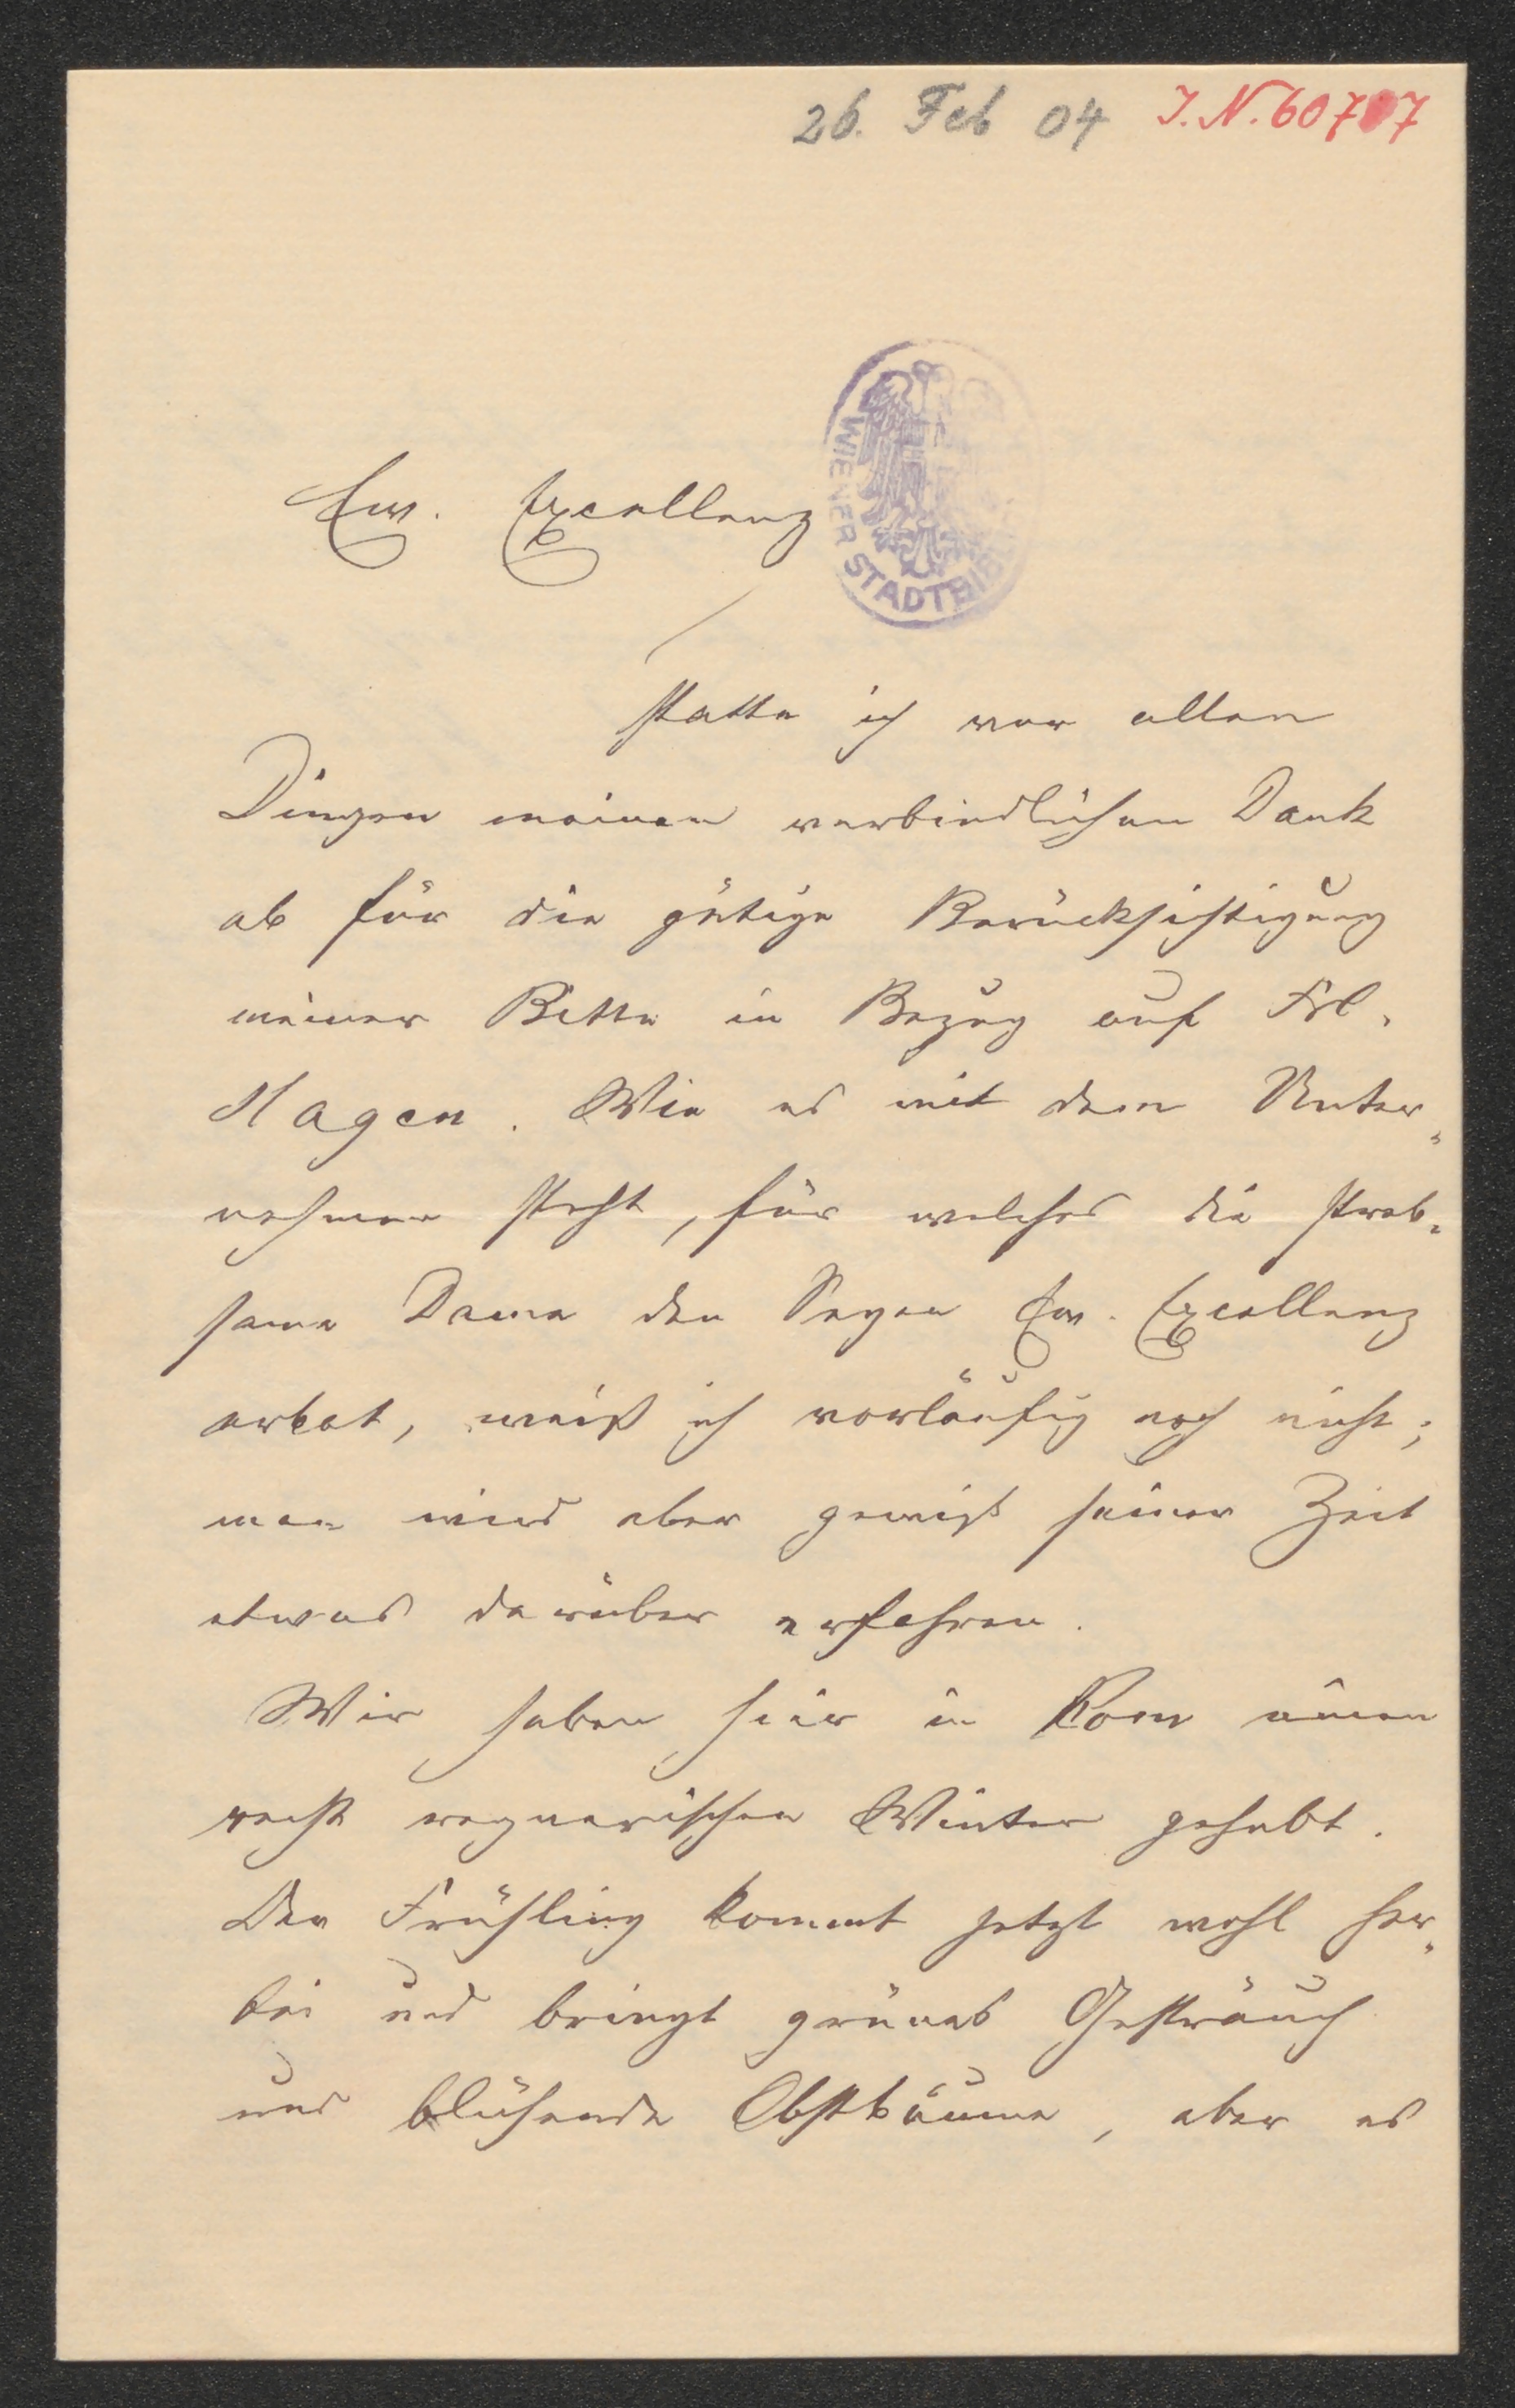 26. Feb 04 I.N. 60787
WIENER STADTBIB
Ew. Excellenz
statte ich vor allen
Dingen meinen verbindlichen Dank
ab für die gütige Berücksichtigung
meiner Bitte in Bezug auf Frl.
Hagen. Wie es mit dem Unter-
nehmen steht, für welches die streb-
same Dame den Segen Ew. Excellenz
erbat, weiß ich vorläufig noch nicht;
man wird aber gewiß seiner Zeit
etwas darüber erfahren.
Wir haben hier in Rom einen
recht regnerischen Winter gehabt.
Der Frühling kommt jetzt wohl her-
bei und bringt grünes Gesträuch
und blühende Obstbäume, aber es